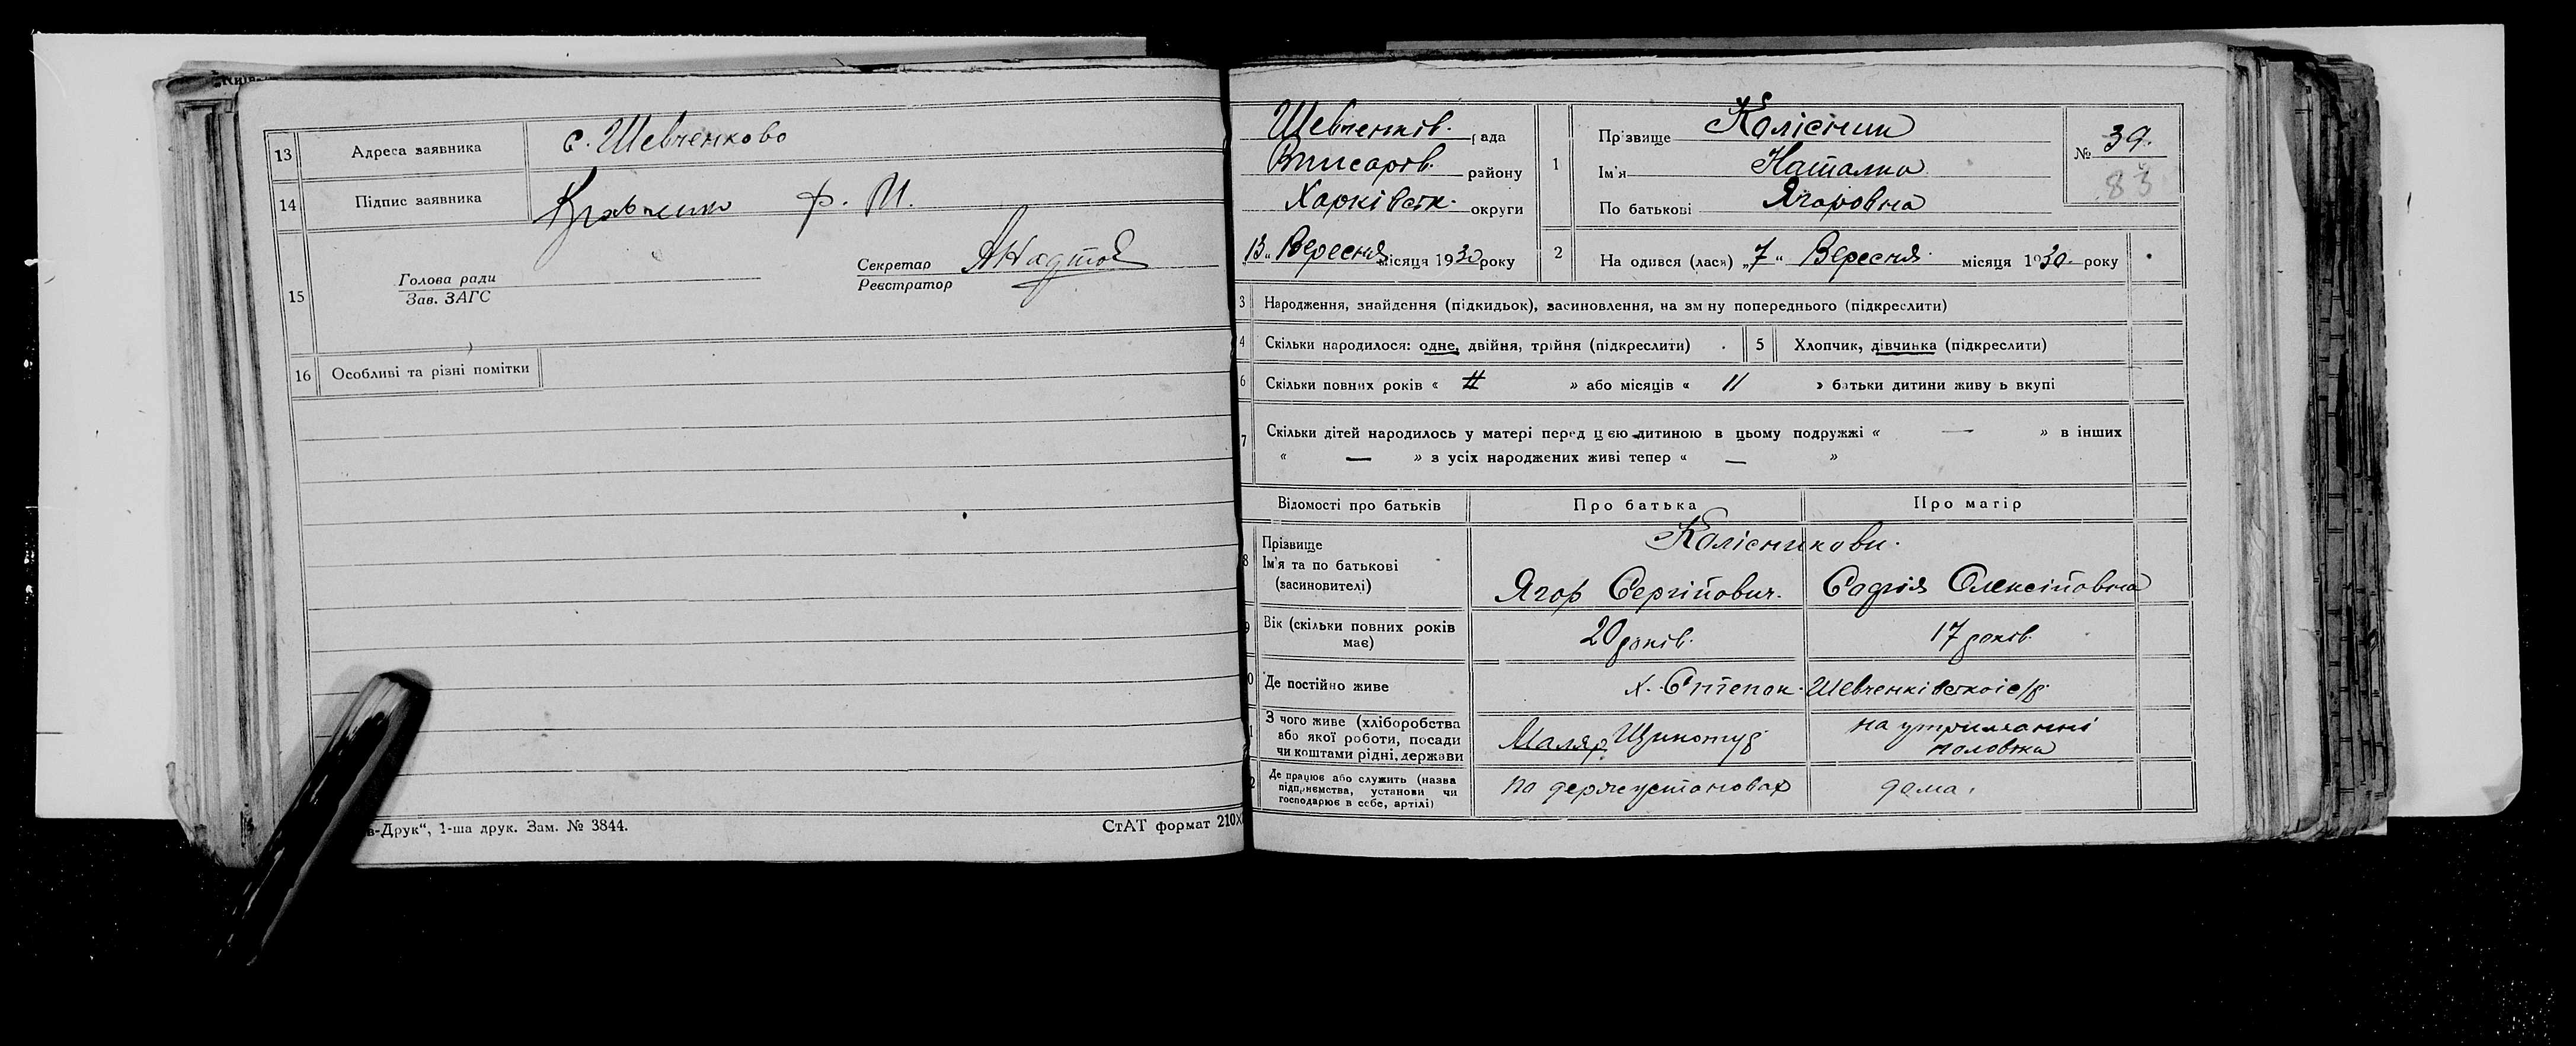 13 Адреса заявника с. Шевченково
14 Підпис заявника Кравченко Ф. М.
15 Голова ради
Зав. ЗАГС
Секретар
Реєстратор
16 Особливі та різні помітки
в-Друк“, 1-ша друк. Зам. № 3844.
СтАТ формат 210х
Шевченків. рада
району
Харківськ. округи
13 „ Вересня місяця 1930 року
1 Прізвище Колісник
Ім'я Наталка
По батькові Ягоровна
№ 39.
83
2 На одився (лася) „7“ Вересня місяця 1930 року
3 Народження, знайдення (підкидьок), засиновлення, на зм ну попереднього (підкреслити)
4 Скільки народилося: одне, двійня, трійня (підкреслити)
5 Хлопчик, дівчинка (підкреслити)
6 Скільки повних років « » або місяців « 11 » батьки дитини живу ь вкупі
7 Скільки дітей народилось у матері перед цією дитиною в цьому подружжі « — » в інших
« — » з усіх народжених живі тепер « — »
Відомості про батьків Про батька Про матір
8 Прізвище
Ім'я та по батькові
(засиновителі)
Колісникови.
Ягор Сергійович. Софія Олексійовна
9 Вік (скільки повних років
має)
20 років. 17 років.
0 Де постійно живе х. Степок Шевченківської с/р.
1 З чого живе (хліборобства
або якої роботи, посади
чи коштами рідні, держави
Маляр
на утриманні
чоловіка
2 Де працює або служить (назва
підприємства, установи чи
господарює в себе, артілі)
по держустановах дома.